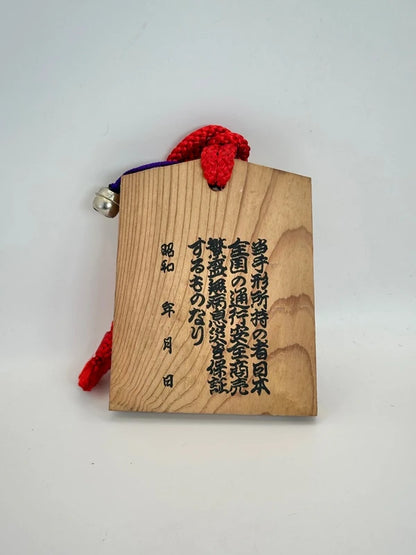 当手形所持の者日本
全国の通行安全商売
繁盛無病息災を保証
するものなり
昭和　年　月　日